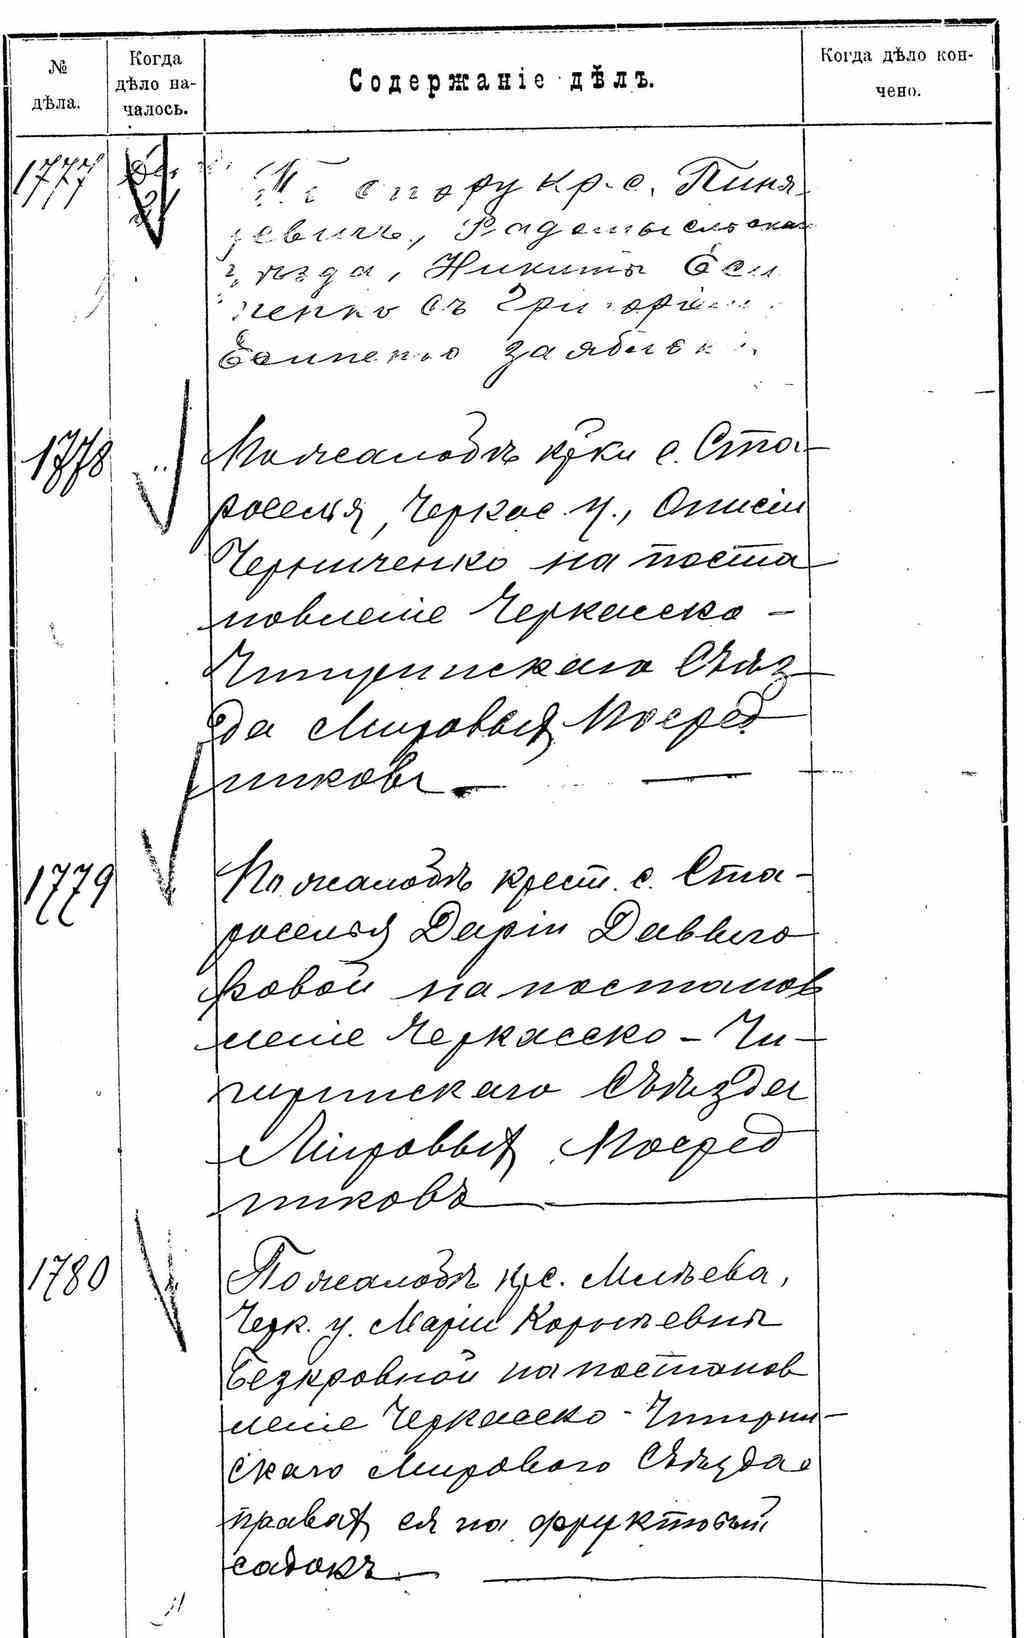 № дѣла.
Когда дѣло на-
чалось.
Содержаніе дѣлъ.
Когда дѣло кон-
чено.
1777
спору кр. с. Пиня-
зевичъ, Радомысльскаго
уѣзда, Никиты Еси
пенко съ Григоріемъ
Есипенко за
1778
По жалобѣ кр-ки с. Ста-
роселья, Черкас. у., Описіи
Черниченко на поста
новленіе Черкасско-
Чигиринскаго Съѣз
да Мировыхъ Посред
никовъ
1779
По жалобѣ крест. с. Ста-
роселья Даріи Давыго
ровой на постанов
леніе Черкасско-Чи-
гиринскаго Съѣзда
Мировыхъ Посред
никовъ
1780
По жалобѣ кр. с. Млѣева,
Черк. у. Маріи Корнѣевны
Безкровной на постанов
леніе Черкасско-Чигирин-
скаго Мирового Съѣзда о
правахъ ея на фруктовый
садокъ